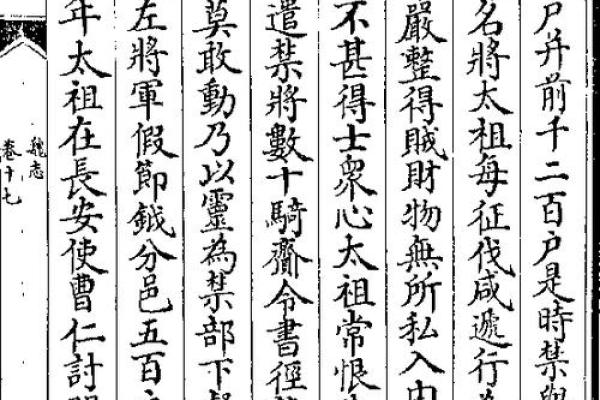 戸并前千二百戸是時禁與
名將太祖每征伐咸遞行為
嚴整得賊財物無所私入由
不甚得士衆心太祖常恨
遣禁將數十騎齎令書徑
莫敢動乃以靈為禁部下督
左將軍假節鉞分邑五百
年太祖在長安使曹仁討關
魏志
卷十七